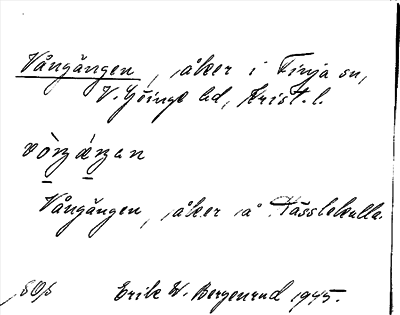 Vångången, åker i Finja sn,
V. Göinge hd, Krist. l.
Vångången, åker å Tässlekulla.
Erik W. Bergenrud 1945.